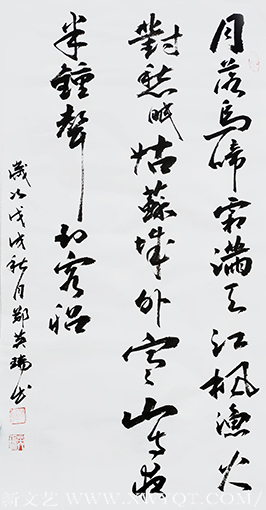 月落烏啼霜滿天江楓漁火
對愁眠姑蘇城外寒山寺夜
半鐘聲到客船
歲次戊戌秋月鄭英瑞书
新文艺 WWW.XWYQT.COM/